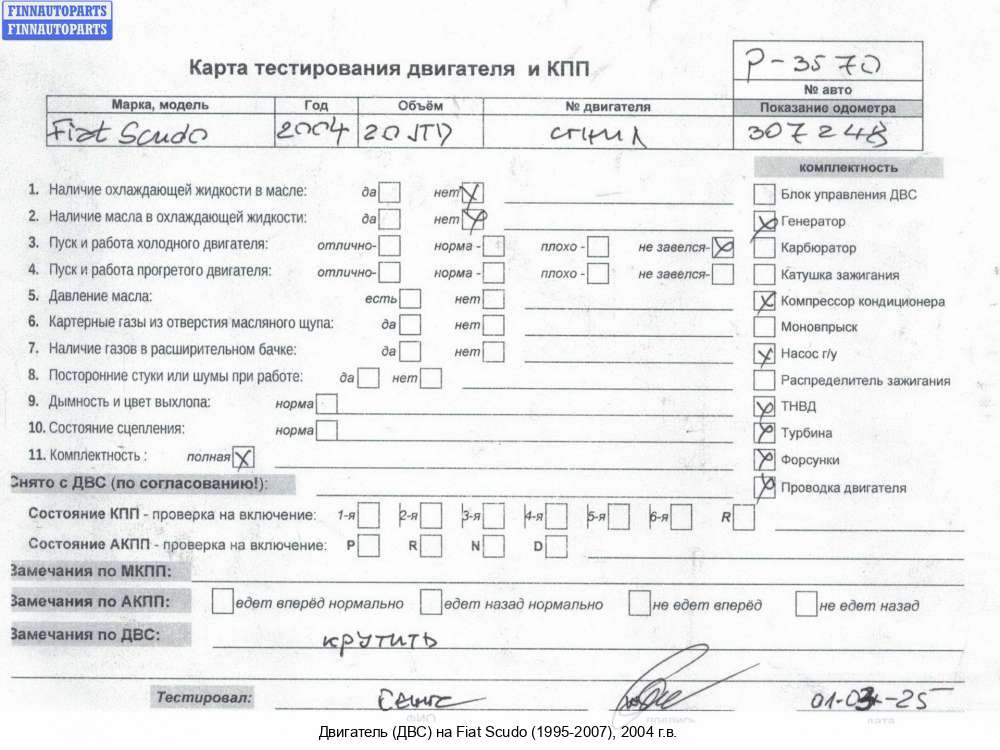 FINNAUTOPARTS
FINNAUTOPARTS
Карта тестирования двигателя и КПП
P-3570
№ авто
Марка, модель Год Объём № двигателя Показание одометра
Fiat Scudo 2004 2.0 JTD сгнил 307248
комплектность
1. Наличие охлаждающей жидкости в масле: да нет X
Блок управления ДВС
2. Наличие масла в охлаждающей жидкости: да нет X
Генератор
3. Пуск и работа холодного двигателя: отлично- норма - плохо - не завелся- X
Карбюратор
4. Пуск и работа прогретого двигателя: отлично- норма - плохо - не завелся-
Катушка зажигания
5. Давление масла: есть нет
Компрессор кондиционера
6. Картерные газы из отверстия масляного щупа: да нет
Моновпрыск
7. Наличие газов в расширительном бачке: да нет
Насос г/у
8. Посторонние стуки или шумы при работе: да нет
Распределитель зажигания
9. Дымность и цвет выхлопа: норма
ТНВД
10. Состояние сцепления: норма
Турбина
11. Комплектность : полная X
Форсунки
Снято с ДВС (по согласованию!):
Проводка двигателя
Состояние КПП - проверка на включение: 1-я 2-я 3-я 4-я 5-я 6-я R
Состояние АКПП - проверка на включение: P R N D
Замечания по МКПП:
Замечания по АКПП: едет вперёд нормально едет назад нормально не едет вперёд не едет назад
Замечания по ДВС: крутить
Тестировал: 01-03-25
ФИО подпись дата
Двигатель (ДВС) на Fiat Scudo (1995-2007), 2004 г.в.